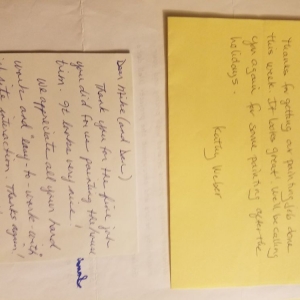 Dear Mike (and Son)
Thank you for the fine job
you did for us painting the house
trim. It looks very nice!
We appreciate all your hard
work and "easy to work with"
interaction. Thanks again,
Thanks for getting our painting job done
this week. It looks great. We'll be calling
you again for some painting after the
holidays.
Kathy Weber